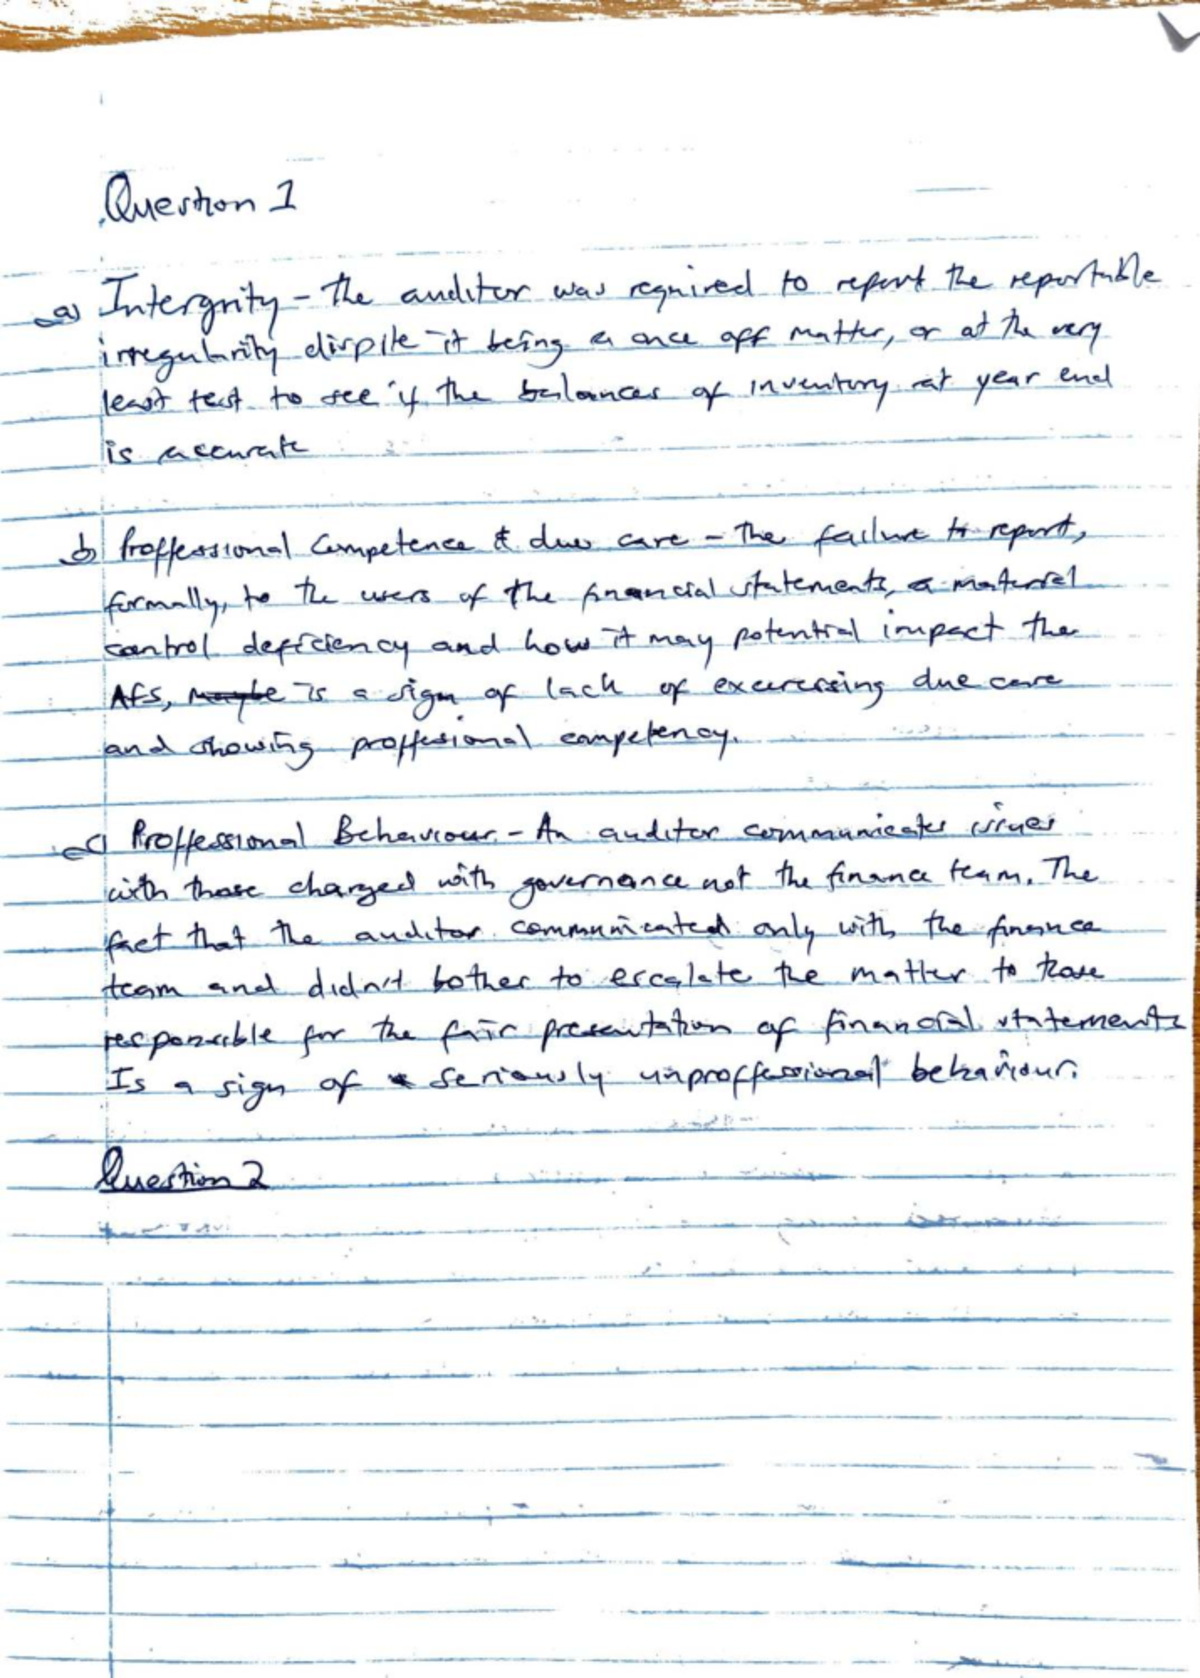 Question 1
a) Intergrity - The auditor was required to report the reportable
irregularity dispite it being a once off matter, or at the very
least test to see if the balances of inventory at year end
is accurate
b) Proffessional Competence & due care - The failure to report,
formally, to the users of the financial statements, a material
control deficiency and how it may potential impact the
AFS, maybe is a sign of lack of excercising due care
and showing proffesional competency.
c) Proffessional Behaviour - An auditor communicates issues
with those charged with governance not the finance team. The
fact that the auditor communicated only with the finance
team and didn't bother to escalate the matter to those
responsible for the fair presentation of financial statements
Is a sign of seriously unproffessional behaviour.
Question 2